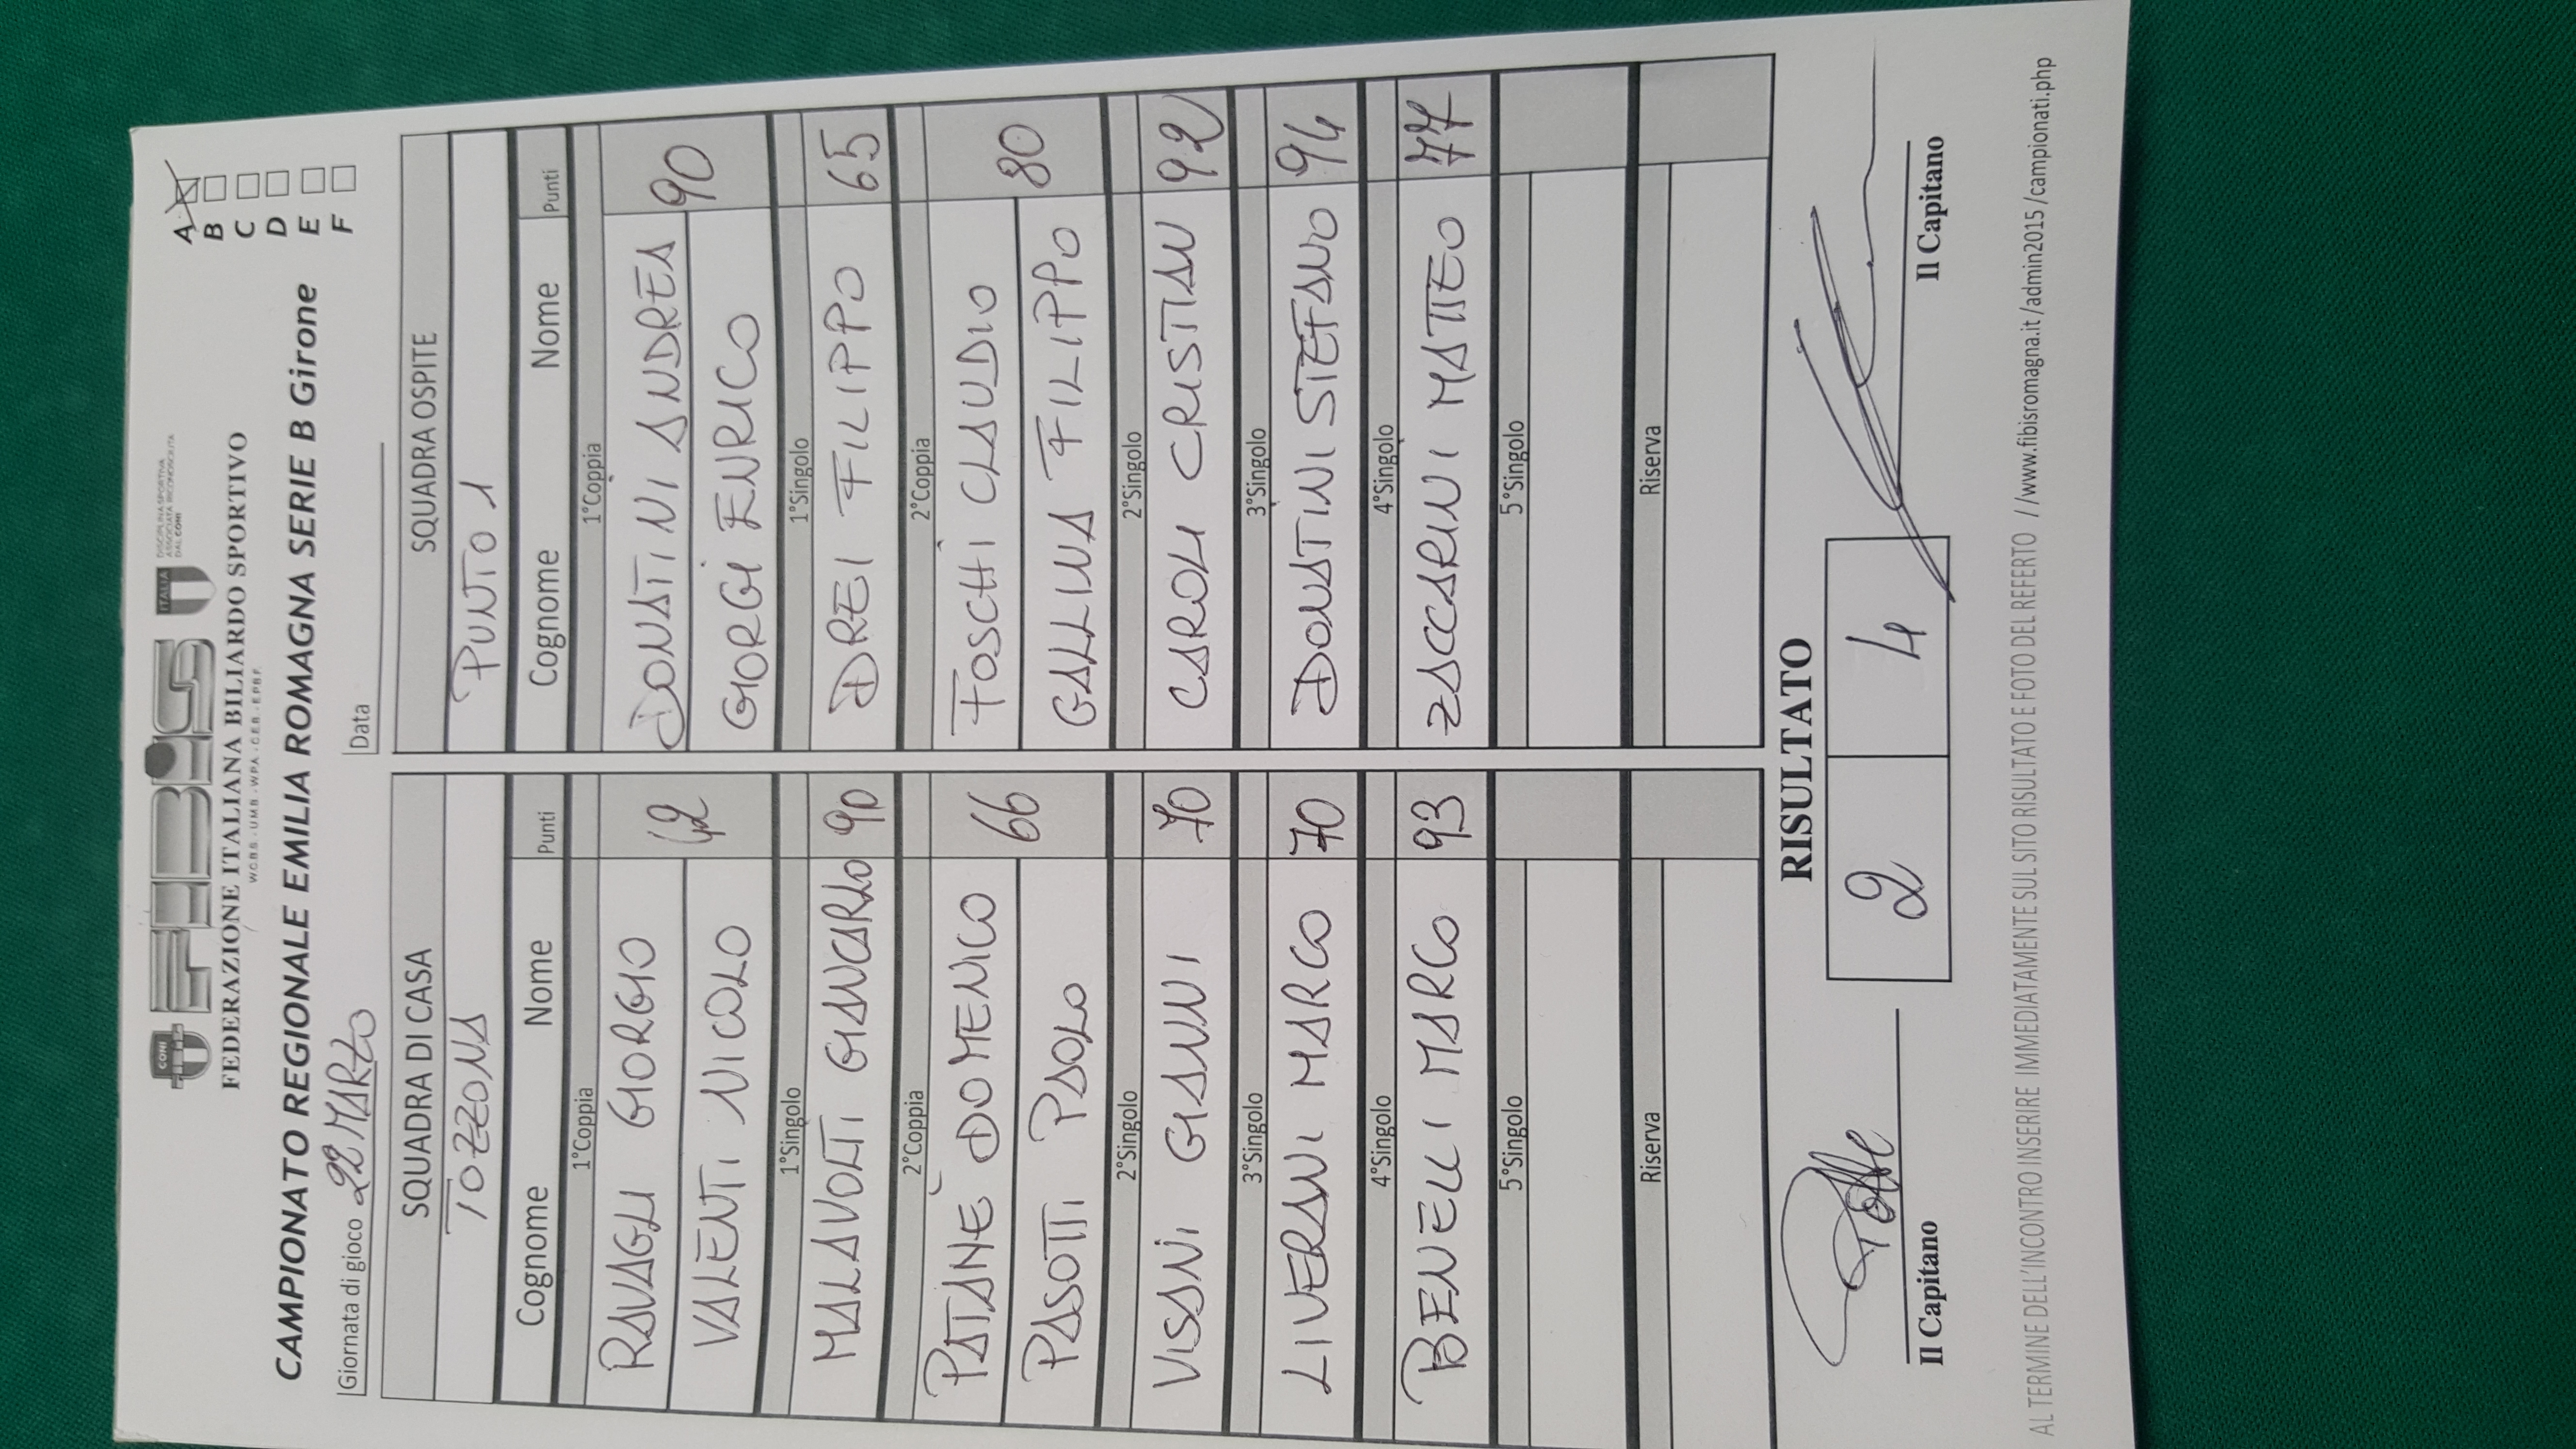 CONI
FIBiS
ITALIA
DISCIPLINA SPORTIVA
ASSOCIATA RICONOSCIUTA
DAL CONI
FEDERAZIONE ITALIANA BILIARDO SPORTIVO
W.C.B.S. - U.M.B. - W.P.A. - C.E.B. - E.P.B.F.
CAMPIONATO REGIONALE EMILIA ROMAGNA SERIE B Girone
A
B
C
D
E
F
Giornata di gioco 22 MARZO
Data
SQUADRA DI CASA
TOZZONA
Cognome Nome Punti
1°Coppia
RAVAGLI GIORGIO
VALENTI NICOLO 42
1°Singolo
MALAVOLTI GIANCARLO 90
2°Coppia
PATIANÈ DOMENICO
PASOTTI PAOLO 66
2°Singolo
VISANI GIANNI 70
3°Singolo
LIVERANI MARCO 70
4°Singolo
BENELLI MARCO 93
5°Singolo
Riserva
SQUADRA OSPITE
PUNTO 1
Cognome Nome Punti
1°Coppia
DONATINI ANDREA
GIORGI ENRICO 90
1°Singolo
DREI FILIPPO 65
2°Coppia
FOSCHI CLAUDIO
GALLINA FILIPPO 80
2°Singolo
CAROLI CRISTIAN 92
3°Singolo
DONATINI STEFANO 94
4°Singolo
ZACCARINI MATTEO 77
5°Singolo
Riserva
RISULTATO
2 4
Il Capitano
Il Capitano
AL TERMINE DELL'INCONTRO INSERIRE IMMEDIATAMENTE SUL SITO RISULTATO E FOTO DEL REFERTO //www.fibisromagna.it/admin2015/campionati.php